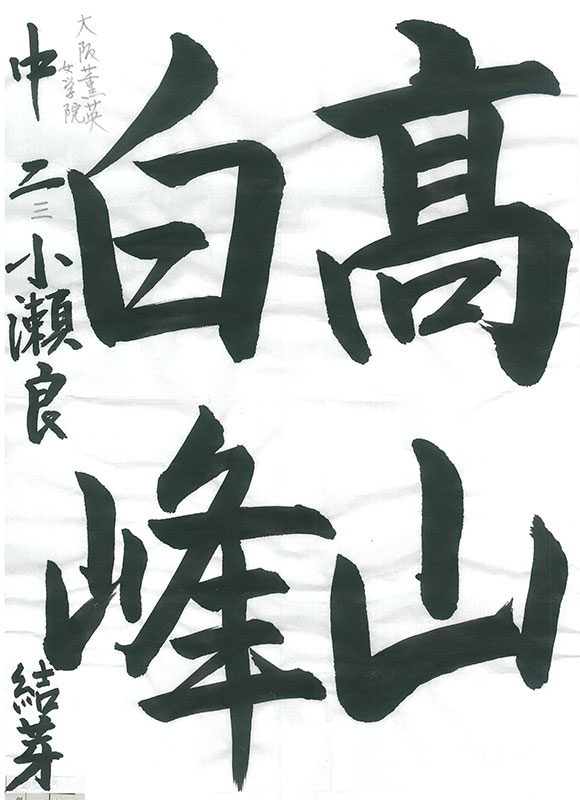 髙山
白峰
大阪薫英
女学院
中二 小瀬良 結芽
三